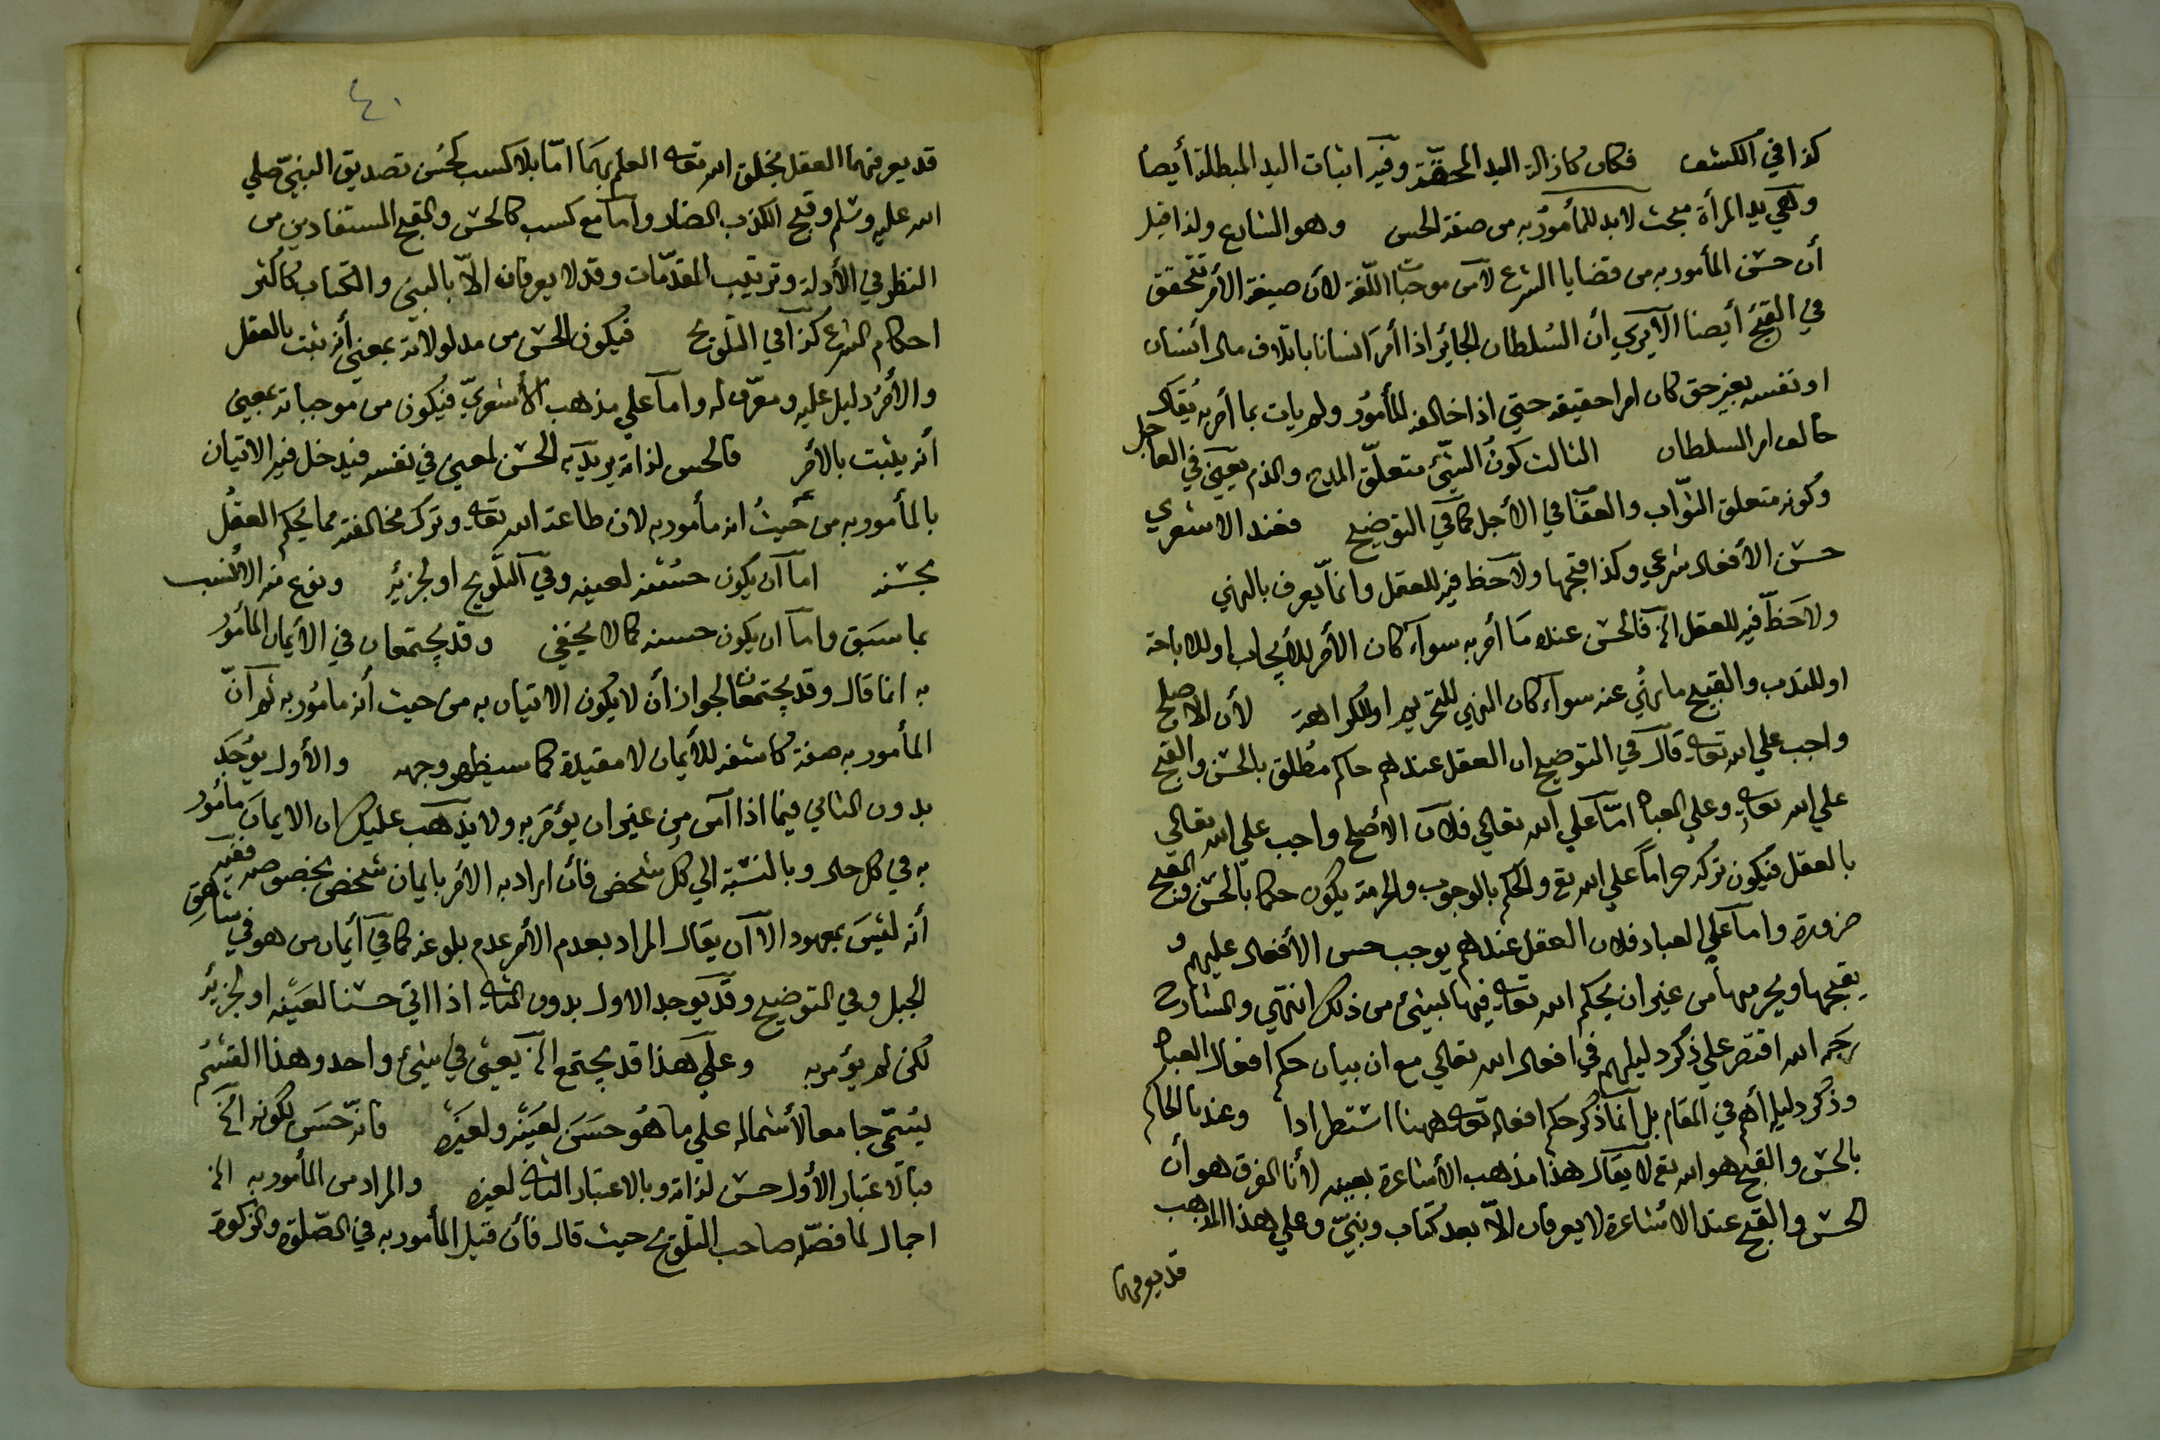 كذا في الكشف فكان كازالة اليد المحقة وفيه اثبات اليد المبطلة أيضا
وهي يد المرأة مبحث لابد للمأمور به من صفة الحسن وهو الشارع ولذا قيل
أن حسن المأمور به من قضايا الشرع لا من موجبات اللغة لأن صيغة الأمر تتحقق
في القبح أيضا ألا يري أن السلطان الجائر اذا أمر انسانا باتلاف مال أنسان
او نفسه بغير حق كان امرا حقيقة حتي اذا خالفه المأمور ولم يات بما أمر به يقال
خالف امر السلطان الثالث كون الشئ متعلق المدح والذم يعني في العاجل
وكونه متعلق الثواب والعقاب في الأجل كما في التوضيح فعند الاشعري
حسن الأفعال شرعي وكذا قبحها ولا حظ فيه للعقل وانما يعرف بالنهي
ولا حظ فيه للعقل الخ فالحسن عنده ما أمر به سواء كان الأمر للأيجاب او للاباحة
او للندب والقبيح ما نهي عنه سواء كان النهي للتحريم او للكراهة لأن الاصلح
واجب علي الله تعه قال في التوضيح ان العقل عندهم حاكم مطلق بالحسن والقبح
علي الله تعه وعلي العباد امّا علي الله تعالي فلان الأصلح واجب علي الله تعالي
بالعقل فيكون تركه حراما علي الله تع والحكم بالوجوب والحرمة يكون حكما بالحسن والقبح
ضرورة واما علي العباد فلان العقل عندهم يوجب حسن الأفعال عليهم و
يقبحها ويحرمها من غير ان يحكم الله تعه فيها لبشئ من ذلك انتهي والشارح
رحمه الله اقتصر علي ذكر دليلهم في افعال الله تعالي مع ان بيان حكم افعال العباد
وذكر دليله أهم في المقام بل انما ذكر حكم افعاله تعه ههنا استطرادا وعندنا الحاكم
بالحسن والقبح هو الله تع لا يقال هذا مذهب الأشاعرة بعينه لأنا الفرق هو أن
الحسن والقبح عند الاشاعرة لا يعرفان الّا بعد كتاب ونبيّ وعلي هذا المذهب
قد يعرفهما
٤٠
قد يعرفهما العقل بخلق الله تعه العلم بهما امّا بلا كسب كحسن تصديق النبيّ صلي
الله عليه وسلم وقبح الكذب الضار واما مع كسب كالحسن والقبح المستفادين من
النظر في الأدلة وترتيب المقدّمات وقد لا يعرفان الّا بالنبي والكتاب كأكثر
احكام الشرع كذا في التلويح فيكون الحسن من مدلولاته بمعني أنه ثبت بالعقل
والأمر دليل عليه ومعرّف له واما علي مذهب الأشعريّ فيكون من موجباته بمعني
أنه يثبت بالأمر فالحسن لذاته يريد به الحسن لمعني في نفسه فيدخل فيه الاتيان
بالمأمور به من حيث انه مأمور به لان طاعة الله تعه وترك مخالفته مما يحكم العقل
بحسنه اما أن يكون حسنه لعينه وفي التلويح او لجزئه ونوع منه الأنسب
بما سبق واما ان يكون حسنه كما لا يخفي وقد يجتمعان في الأيمان المأمور
به انما قال وقد يجتمعان لجواز أن لا يكون الاتيان به من حيث أنه مامور به ثم أنّ
المأمور به صفة كاشفة للأيمان لا مقيدة كما سيظهر وجهه والأول يوجد
بدون الثاني فيما اذا آمن من غير ان يؤمر به ولا يذهب عليك ان الايمان مأمور
به في كل حال وبالنسبة الي كل شخص فأن اراد به الأمر بايمان شخص بخصوصه ففيه
أنه ليس بمعهود الا أن يقال المراد بعدم الأمر عدم بلوغه كما في أيمان من هو في شاهق
الجبل وفي التوضيح وقد يوجد الاول بدون الثاني اذا اتي حسنا لعينه او لجزئه
لكن لم يؤمر به وعلي هذا قد يجتمع الخ يعني في شئ واحد وهذا القسم
يسمّي جامعا لأشماله علي ما هو حسن لعينه ولغيره فانه حسن لكونه الخ
فبالاعتبار الأول حسن لذاته وبالاعتبار الثاني لغيره والمراد من المأمور به الخ
اجمال لما فصّله صاحب التلويح حيث قال فأن قيل المأمور به في الصّلوة والزكوة